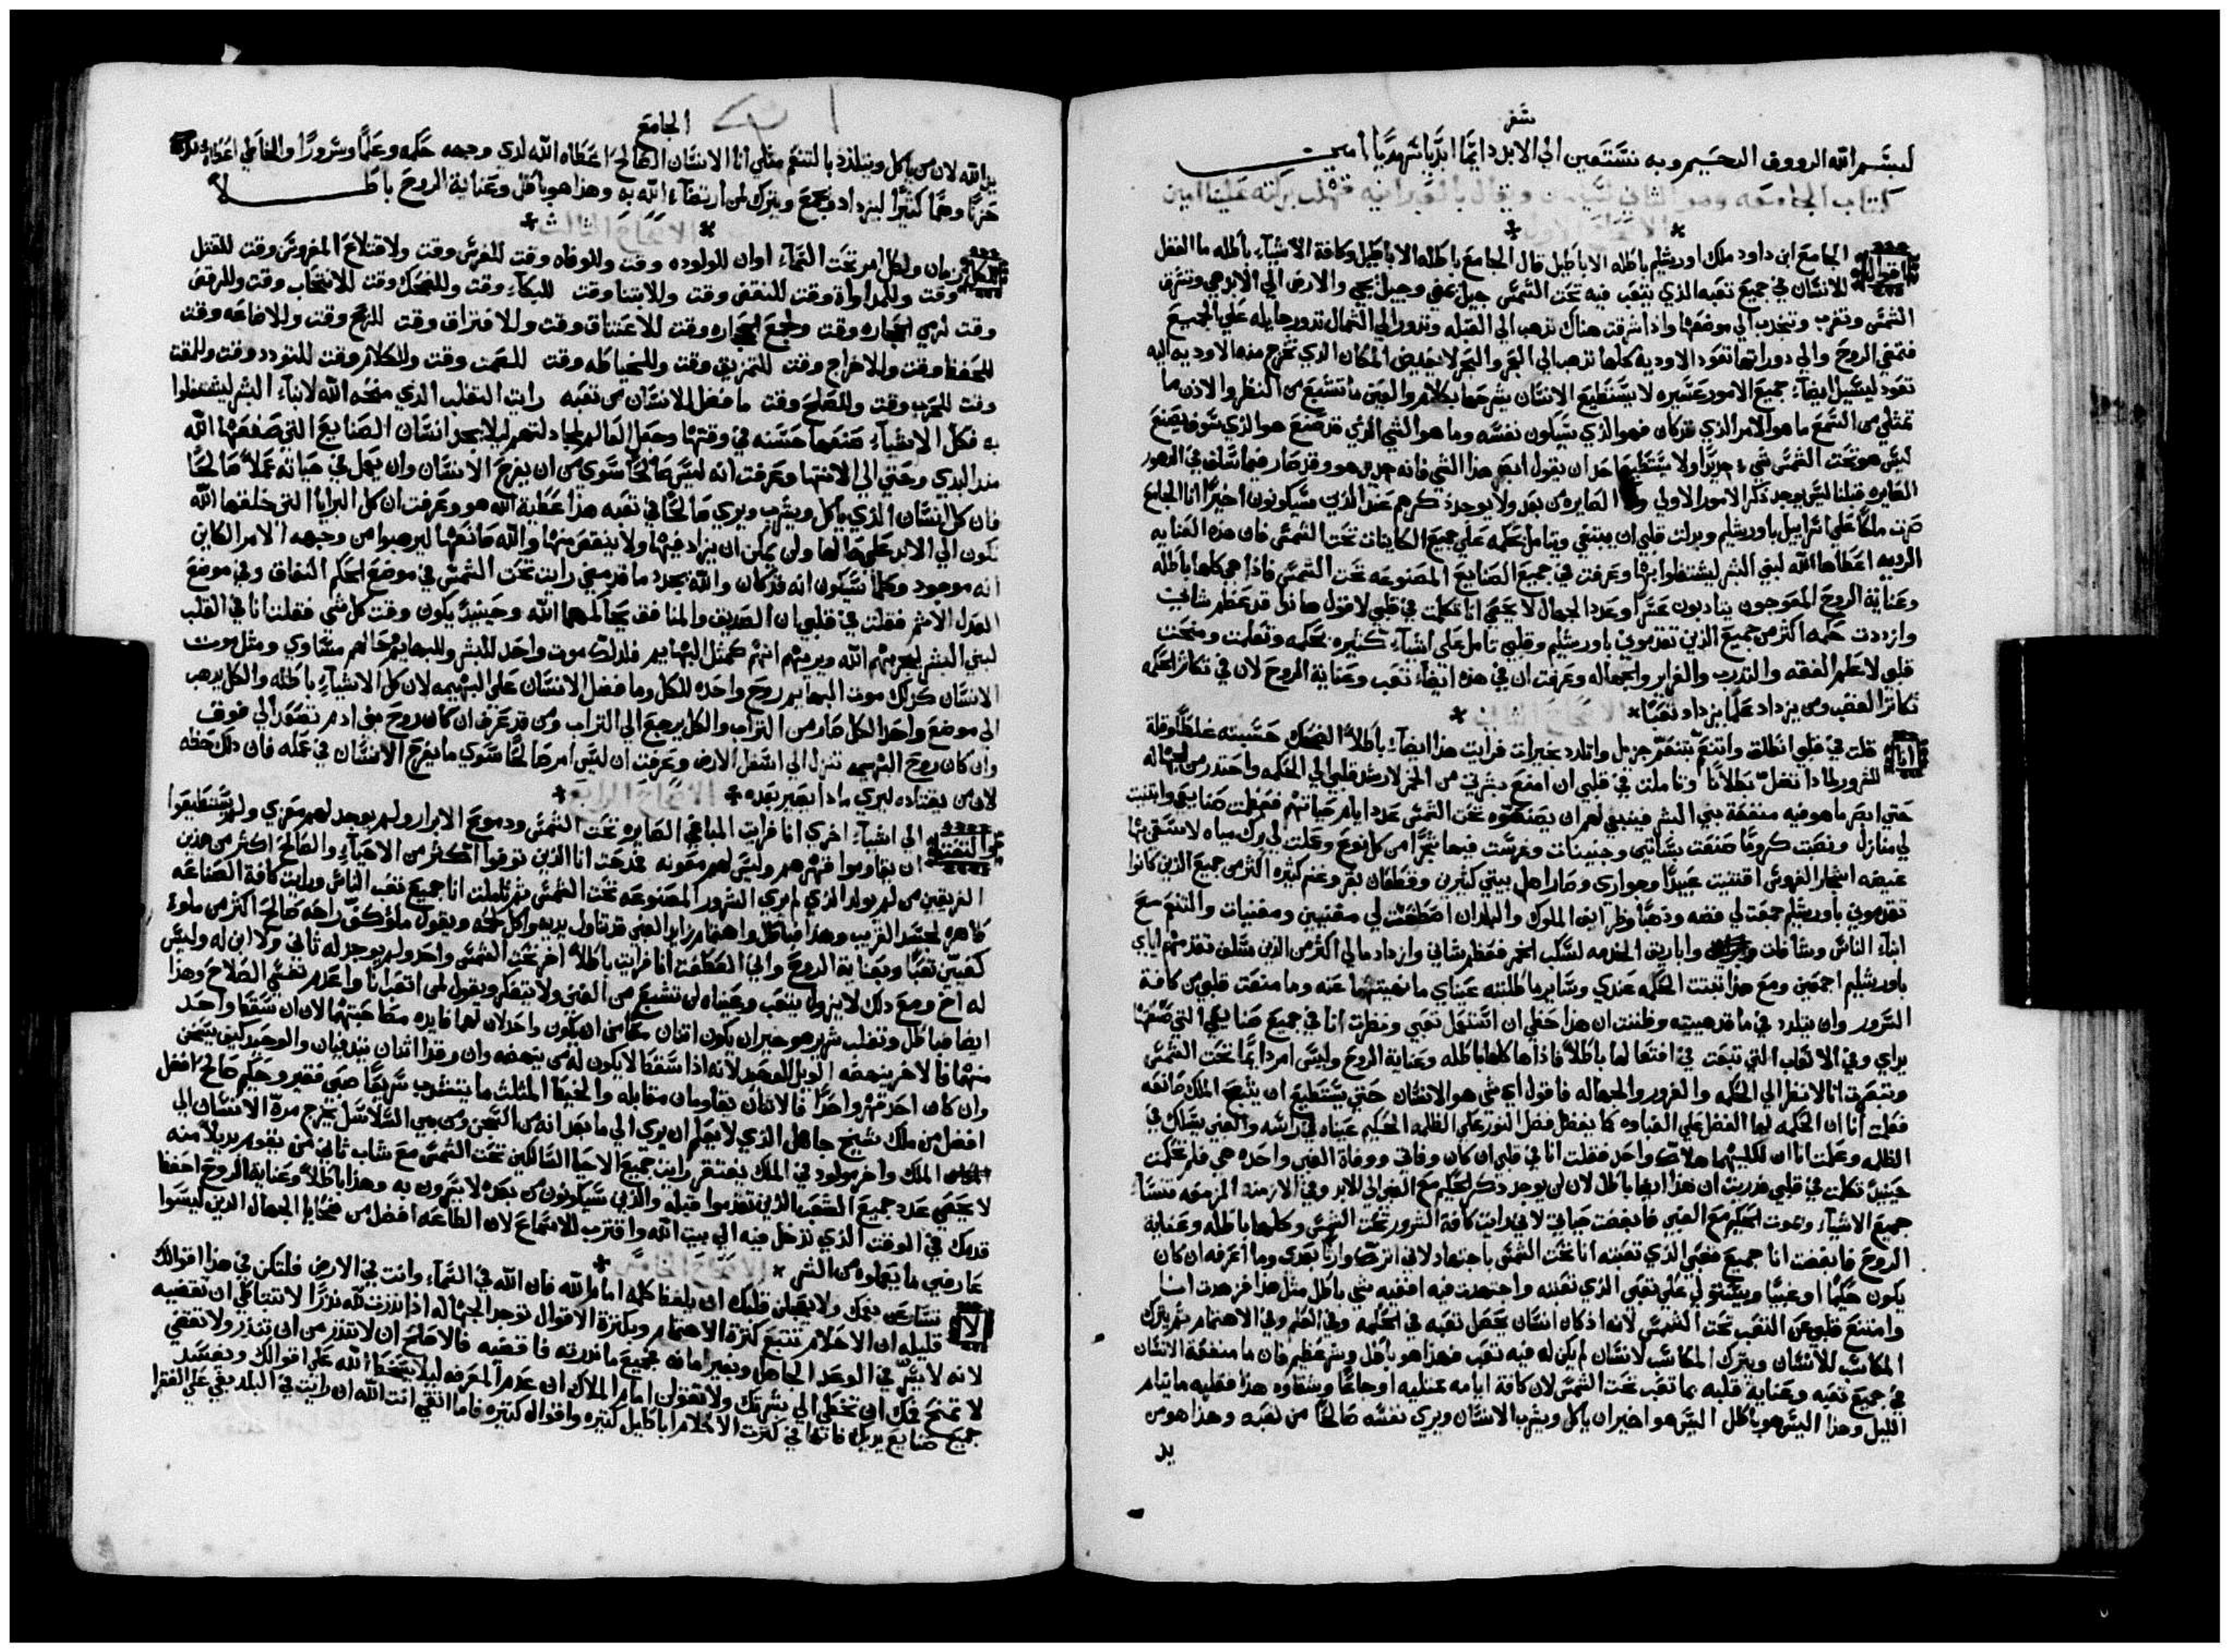 سفر
لبسم الله الرووف الرحيم وبه نستعين الي الابد دايمًا ابديًا سرمديًا امين
كتاب الجامعه وهو الثاني لسليمن ويقال بالعبرانيه قهلت بركته علينا امين
الاصحاح الاول
اقوال الجامع ابن داود ملك اورشليم باطله الاباطيل قال الجامع باطله الاباطيل وكافة الاشياء باطله ما الفضل
للانسان في جميع تعبه الذي يتعب فيه تحت الشمس جيل يمضي وجيل يجي والارض الي الابد هي وتشرق
الشمس وتغرب وتنجذب الي موضعها واذا اشرقت هناك تذهب الي القبله وتدور الي الشمال تدور جايله علي الجميع
فتمضي الروح والي دوراتها تعود الاوديه كلها تذهب الي البحر والبحر لا يفيض المكان الذي تخرج منه الاوديه اليه
تعود لتسيل ايضاء جميع الامور عسيره لا يستطيع الانسان يشرحها بكلام والعين ما تشبع من النظر والاذن ما
تمتلي من السمع ما هو الامر الذي قد كان فهو الذي سيكون نفسه وما هو الشي الذي قد صنع هو الذي سوف يصنع
ليس هو تحت الشمس شيء جديدًا ولا يستطيع احد ان يقول ابصر هذا الشي فانه جديد هو وقد صار فيما سلف في الدهور
الصايره قبلنا ليس يوجد ذكر الامور الاولي ولا الصايره من بعد ولا يوجد ذكرهم عند الذين سيكونون اخيرًا انا الجامع
صرت ملكًا علي اسراييل باورشليم وبدلت قلبي ان يبتغي ويتامل بحكمه علي جميع الكاينات تحت الشمس فان هذه العنايه
الرديه اعطاها الله لبني البشر ليشتغلوا بها وعرفت في جميع الصنايع المصنوعه تحت الشمس فاذا هي كلها باطله
وعناية الروح المعوجون يتادبون عسرًا وعدد الجهال لا يحصي انا تكلمت في قلبي لاقول هانذا قد عظم شاني
وازددت حكمه اكثر من جميع الذين تقدموني باورشليم وقلبي تامل علي اشياء كثيره بحكمه وتعلمت ومنحت
قلبي لاعلم الفقه والتدرب والغراير والجهاله وعرفت ان في هذه ايضاء تعب وعناية الروح لان في تكاثر الحكمه
تكاثر الغضب ومن يزداد علمًا يزداد تعبًا
انا قلت في قلبي انطلق واتنعم بتنعم جزيل واتلدد بخيرات فرايت هذا ايضاء باطلاً الضحك حسبته غلطًا وقلة
للسرور لماذا تضل بطلانًا وتاملت في قلبي ان امنع بشرتي من الخمر لارشد قلبي الي الحكمه واحتذر من الجهاله
حتي ابصر ما هو فيه منفعة بني البشر فينبغي لهم ان يصنعوه تحت الشمس عدد ايام حياتهم فعظمت صنايعي وابتنيت
لي منازل ونصبت كرومًا صنعت بساتين وجنينات وغرست فيها شجرًا من كل نوع وعملت لي برك مياه لاستقي منها
غيضه اشجار الغروس اقتنيت عبيدًا وجواري وصار اهل بيتي كثيرين وقطعان بقر وغنم كثيره اكثر من جميع الذين كانوا
تقدموني باورشليم جمعت لي فضه وذهبًا وظرايف الملوك والبلدان اصطفيت لي مغنيين ومغنيات والتنعم مع
ابناء الناس وسافلت واباريق الخدمه لسكب الخمر فعظم شاني وازداد مالي اكثر من الذين سلف تقدمهم اياي
باورشليم اجمعين ومع هذا ثبتت الحكمه عندي وساير ما طلبته عيناي ما نحيتهما عنه وما منعت قلبي من كافة
السرور وان يتلدد في ما قد هييته وظننت ان هذا حظي ان استعمل تعبي ونظرت انا في جميع صنايعي التي صنعتها
يداي وفي الاتعاب التي تعبت في افتعالها باطلاً فاذاها كلها باطله وعناية الروح وليس امر دايمًا تحت الشمس
وتصرفت انا لانظر الي الحكمه والغرور والجهاله فاقول اي شي هو الانسان حتي يستطيع ان يتبع الملك صانعه
فعلمت انا ان الحكمه لها الفضل علي الغباوه كما يفضل فضل النور علي الظلمه الحكيم عيناه في راسه والغبي يسلك في
الظلمه وعلمت انا ان لكليهما هلاك واحد فقلت انا في قلبي ان كان وفاتي ووفاة الغبي واحده هي فلم تحكمت
حينيذ تكلمت في قلبي فدريت ان هذا ايضا باطل لان لن يوجد ذكر الحكيم مع الغبي الي الابد وفي الازمنة المزمعه تنسا
جميع الاشياء ويموت الحكيم مع الغبي فابغضت حياتي لاني رايت كافة الشرور تحت الشمس وكلها باطله وعناية
الروح فابغضت انا جميع تعبي الذي تعبته انا تحت الشمس باجتهاد لاني اترك وارثًا بعدي وما اعرفه ان كان
يكون حكيمًا او غبيًا ويستولي علي تعبي الذي تعبته واجتهدت فيه افقيه شي باطل مثل هذا فزهدت انا
وامتنع قلبي عن التعب تحت الشمس لانه اذ كان انسان يجعل تعبه في الحكمه وفي العلم وفي الاهتمام ثم يترك
المكاسب للانسان ويترك المكاسب لانسان لم يكن له فيه تعب فهذا هو باطل وشر عظيم فان ما منفعة الانسان
في جميع تعبه وعناية قلبه بما تعب تحت الشمس لان كافة ايامه ممتليه اوجاعًا وشقاوه هذا فقلبه ما ينام
الليل وهذا اليس هو باطل اليس هو اخير ان ياكل ويشرب الانسان ويري نفسه صالحًا من تعبه وهذا هو من
يد
الجامع
يد الله لان من ياكل ويتلذذ بالتنعم مثلي انا الانسان الصالح اعطاه الله لدي وجهه حكمه وعلمًا وسرورًا والخاطي اعطاه
حزنًا وهمًا كثيرًا ليزداد ويجمع ويترك لمن ارتضاء الله به وهذا هو باطل وعناية الروح باطلا
الاصحاح الثالث
لكل زمان ولكل امر تحت السماء اوان للولوده وقت وللوفاه وقت للغرس وقت ولاقتلاع المغروس وقت للقتل
وقت وللمداواة وقت للنقض وقت وللابتنا وقت للبكاء وقت وللضحك وقت للانتحاب وقت وللرقص
وقت لرمي الحجاره وقت ولجمع الحجاره وقت للاعتناق وقت وللافتراق وقت للربح وقت وللاضاعه وقت
للحفظ وقت وللاخراج وقت للتمزيق وقت وللخياطه وقت للصمت وقت وللكلام وقت للتودد وقت وللمقت
وقت للحرب وقت وللصلح وقت ما فضل للانسان من تعبه رايت التقلب الذي منحه الله لابناء البشر ليشتغلوا
به فكل الاشياء صنعها حسنه في وقتها وجعل العالم لمجادلتهم ليلا يجد انسان الصنايع التي صنعها الله
منذ البدي وحتي الي الانتها وعرفت انه ليس صالحًا سوي من ان يفرح الانسان وان يعمل في حياته عملاً صالحًا
فان كل انسان الذي ياكل ويشرب ويري صالحًا في تعبه هذا عطية الله هو وعرفت ان كل البرايا التي خلقها الله
تكون الي الابد علي حالها ولن يمكن ان يزاد فيها ولا ينقص منها والله صانعها ليرهبوا من وجهه الامر الكاين
انه موجود وكلما سيكون انه قد كان والله يجدد ما قد مضي رايت تحت الشمس في موضع الحكم النفاق وفي موضع
العدل الاثم فقلت في قلبي ان الصديق والمنافق يحاكمهما الله وحينيذ يكون وقت كل شي فقلت انا في القلب
لبني البشر يجربهم الله ويريهم انهم كمثل البهايم فلذلك موت واحد للبشر وللبهايم وحالهم متساوي ومثل موت
الانسان كذلك موت البهايم روح واحده للكل وما فضل الانسان علي البهيمه لان كل الاشياء باطله والكل يذهب
الي موضع واحد الكل صار من التراب والكل يرجع الي التراب ومن قد عرف ان كان روح بني ادم تصعد الي فوق
وان كان روح البهيمه تنزل الي اسفل الارض وعرفت ان ليس امر صالحًا سوي ما يفرح الانسان في عمله فان ذلك حظه
لان من يقتاده ليري ماذا يصير بعده
الاصحاح الرابع
والتفت الي اشياء اخري انا فرايت المباغي الصايره تحت الشمس ودموع الابرار ولم يوجد لهم معزي ولم يستطيعوا
ان يقاوموا قهرهم وليس لهم معونه فمدحت انا الذين توفوا اكثر من الاحياء والصالح اكثر من هذين
الفريقين من لم يولد الذي لم يري الشرور المصنوعه تحت الشمس ثم تاملت انا جميع تعب الناس ورايت كافة الصناعه
ظاهره لحسد القريب وهذا فباطل واهتمام زايد الغبي قد تناول يديه واكل لحمه ويقول ملؤ كف راحه صالح اكثر من ملوء
كفين تعبًا وبعناية الروح والي انعطفت انا فرايت باطلاً اخر تحت الشمس واحد ولم يوجد له ثاني ولا ابن له وليس
له اخ ومع ذلك لا يزول يتعب وعيناه لن تشبع من الغني ولا يتفكر ويقول لمن اتعب انا واعدم نفسي الصلاح وهذا
ايضا فباطل وتقلب شرير هو خير ان يكون اثنان معًا من ان يكون واحد لان لهما فايده مصاحبتهما لان ان سقط واحد
منهما فالاخر ينهضه الويل للوحيد لانه اذا سقط لا يكون له من ينهضه وان رقد اثنان يتدفيان والوحيد كيف يسخن
وان كان احد قهر واحدًا فالاثنان يقاومان مقابله والخيط المثلث ما ينقطع سريعًا صبي فقير وحكيم صالح افضل
افضل من ملك شيخ جاهل الذي لا يعلم ان يري الي ما بعد انه من السجن ومن بين السلاسل يخرج مرة الانسان الي
الملك واخر مولود في الملك يفتقر رايت جميع الاحيا السالكين تحت الشمس مع شاب ثاني من يقوم بديلاً منه
لا يحصي عدد جميع الشعب الذين تقدموا قبله والذين سيكونون من بعده لا يسرون به وهذا باطلاً وعناية الروح احفظ
قدمك في الوقت الذي تدخل فيه الي بيت الله واقترب للاستماع لان الطاعه افضل من ضحايا الجهال الذين ليسوا
عارفين ما يعملوه من الشر
لا تسارع بفمك ولا يعجلن قلبك ان يلفظ كلمه امام الله فان الله في السماء وانت في الارض فلتكن في هذا اقوالك
قليله ان الاحلام تتبع كثرة الاهتمام وبكثرة الاقوال توجد الجهاله اذا نذرت لله نذرًا لا تتباطي ان تقضيه
لانه لا يسر في الوعد الجاهل وبغير امانه فجميع ما نذرته فاقضيه فالاصلح ان لا تنذر من ان تنذر ولا تقضي
لا تمنح فمك ان تخطي الي بشرتك ولا تقولن امام الملاك ان عدم المعرفه ليلا يسخط الله علي اقوالك ويفسد
جميع صنايع يديك فانها في كثرت الاحلام اباطيل كثيره واقوال كثيره فاما اتقي انت الله ان رايت في البلد بغي علي الفقرا